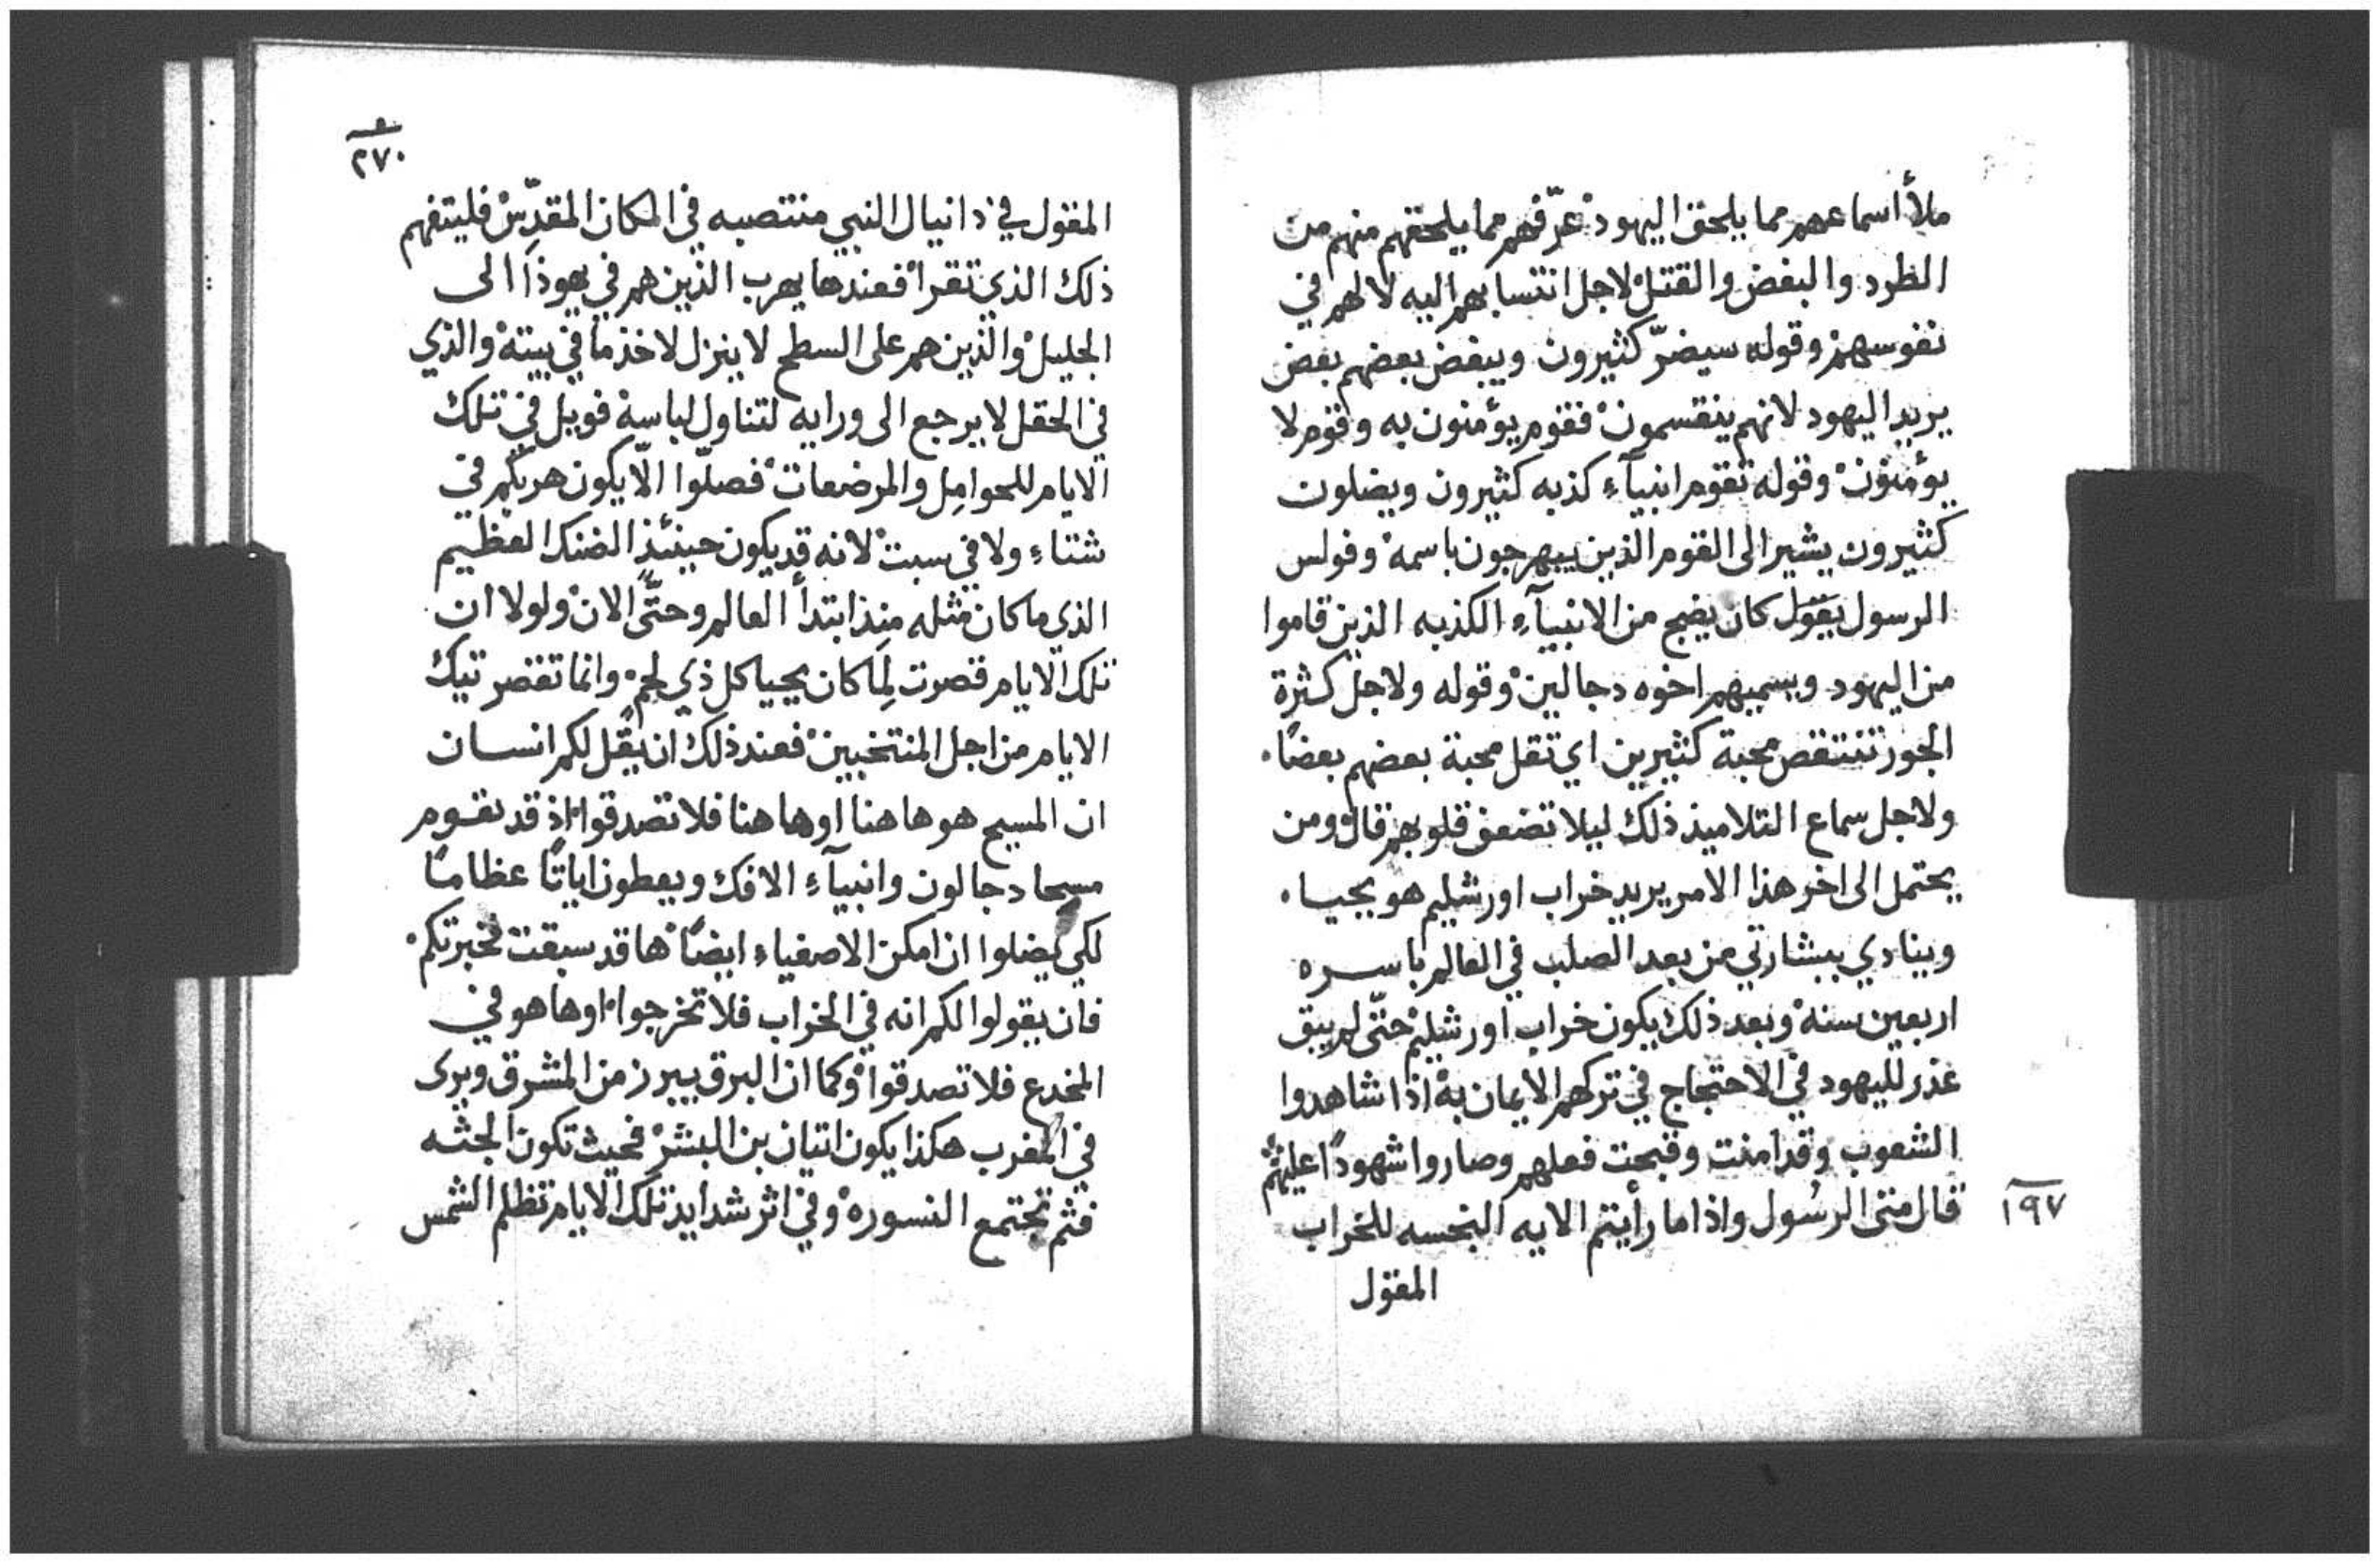 ملأ اسماعهم مما يلحق اليهود عرّفهم مما يلحقهم منهم من
الطرد والبغض والقتل لاجل انتسابهم اليه لا لهم في
نفوسهم وقوله سيضرّ كثيرون ويبغض بعضهم بعض
يريد اليهود لانهم ينقسمون فقوم يؤمنون به وقوم لا
يؤمنون وقوله تقوم انبيآء كذبه كثيرون ويضلون
كثيرون يشير الى القوم الذين يبهرجون باسمه وفولس
الرسول يقول كان يضج من الانبيآء الكذبه الذين قاموا
من اليهود ويسميهم اخوه دجالين وقوله ولاجل كثرة
الجور تنتقص محبة كثيرين اي تقل محبة بعضهم بعضاً
ولاجل سماع التلاميذ ذلك ليلا تضعف قلوبهم قال ومن
يحتمل الى اخر هذا الامر يريد خراب اورشليم هو يحيا
وينادي ببشارتي من بعد الصلب في العالم باسره
اربعين سنه وبعد ذلك يكون خراب اورشليم حتّى لم يبق
عذر لليهود في الاحتجاج في تركهم الايمان به اذا شاهدوا
الشعوب وقد امنت وقبحت فعلهم وصاروا شهوداً عليهم
١٩٧ قال متى الرسول واذا ما رأيتم الايه النجسه للخراب
المقول
٢٧٠
المقول في دانيال النبي منتصبه في المكان المقدّس فليتفهم
ذلك الذي تقرا فعندها يهرب الذين هم في يهوذا الى
الجليل والذين هم على السطح لا ينزل لاخذ ما في بيته والذي
في الحقل لا يرجع الى ورايه لتناول لباسه فويل في تلك
الايام للحوامل والمرضعات فصلّوا الّا يكون هربكم في
شتاء ولا في سبت لانه قد يكون حينئذ الضنك العظيم
الذي ما كان مثله منذ ابتدأ العالم وحتّى الان ولولا ان
تلك الايام قصرت لما كان يحيا كل ذي لحم وانما تقصر تيك
الايام من اجل المنتخبين فعند ذلك ان يقل لكم انسان
ان المسيح هو هاهنا او هاهنا فلا تصدقوا اذ قد تقوم
مسحا دجالون وانبيآء الافك ويعطون اياتاً عظاماً
لكي يضلوا ان امكن الاصفياء ايضاً ها قد سبقت فخبرتكم
فان يقولوا لكم انه في الخراب فلا تخرجوا او ها هو في
المخدع فلا تصدقوا وكما ان البرق يبرز من المشرق ويرى
في المغرب هكذا يكون اتيان بن البشر فحيث تكون الجثه
فثم تجتمع النسوره وفي اثر شدايد تلك الايام تظلم الشمس